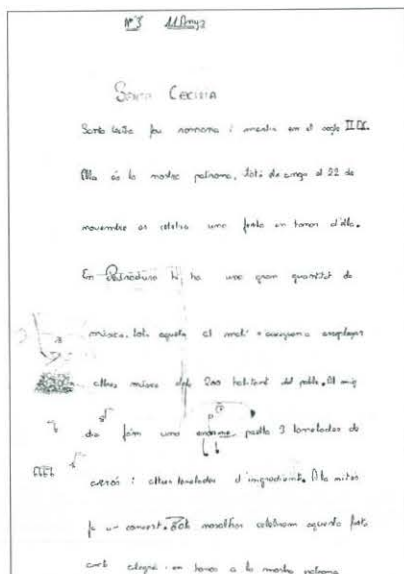 Nº 3 11 Anys
SANTA CECILIA
Santa Cecilia fou romana i en el segle II DC.
Ella és la nostra patrona, el 22 de
novembre es celebra una festa en honor d'ella.
En hi ha una gran quantitat de
músics, tots aquets al matí a
altres músics dels 200 habitant del poble. Al mig
dia feim una enorme paella 3 toneladas de
arrós i altres toneladas d'ingredients. A la
fa un concert. Tots nosaltres celebram aquesta festa
amb alegria en honor a la nostra patrona